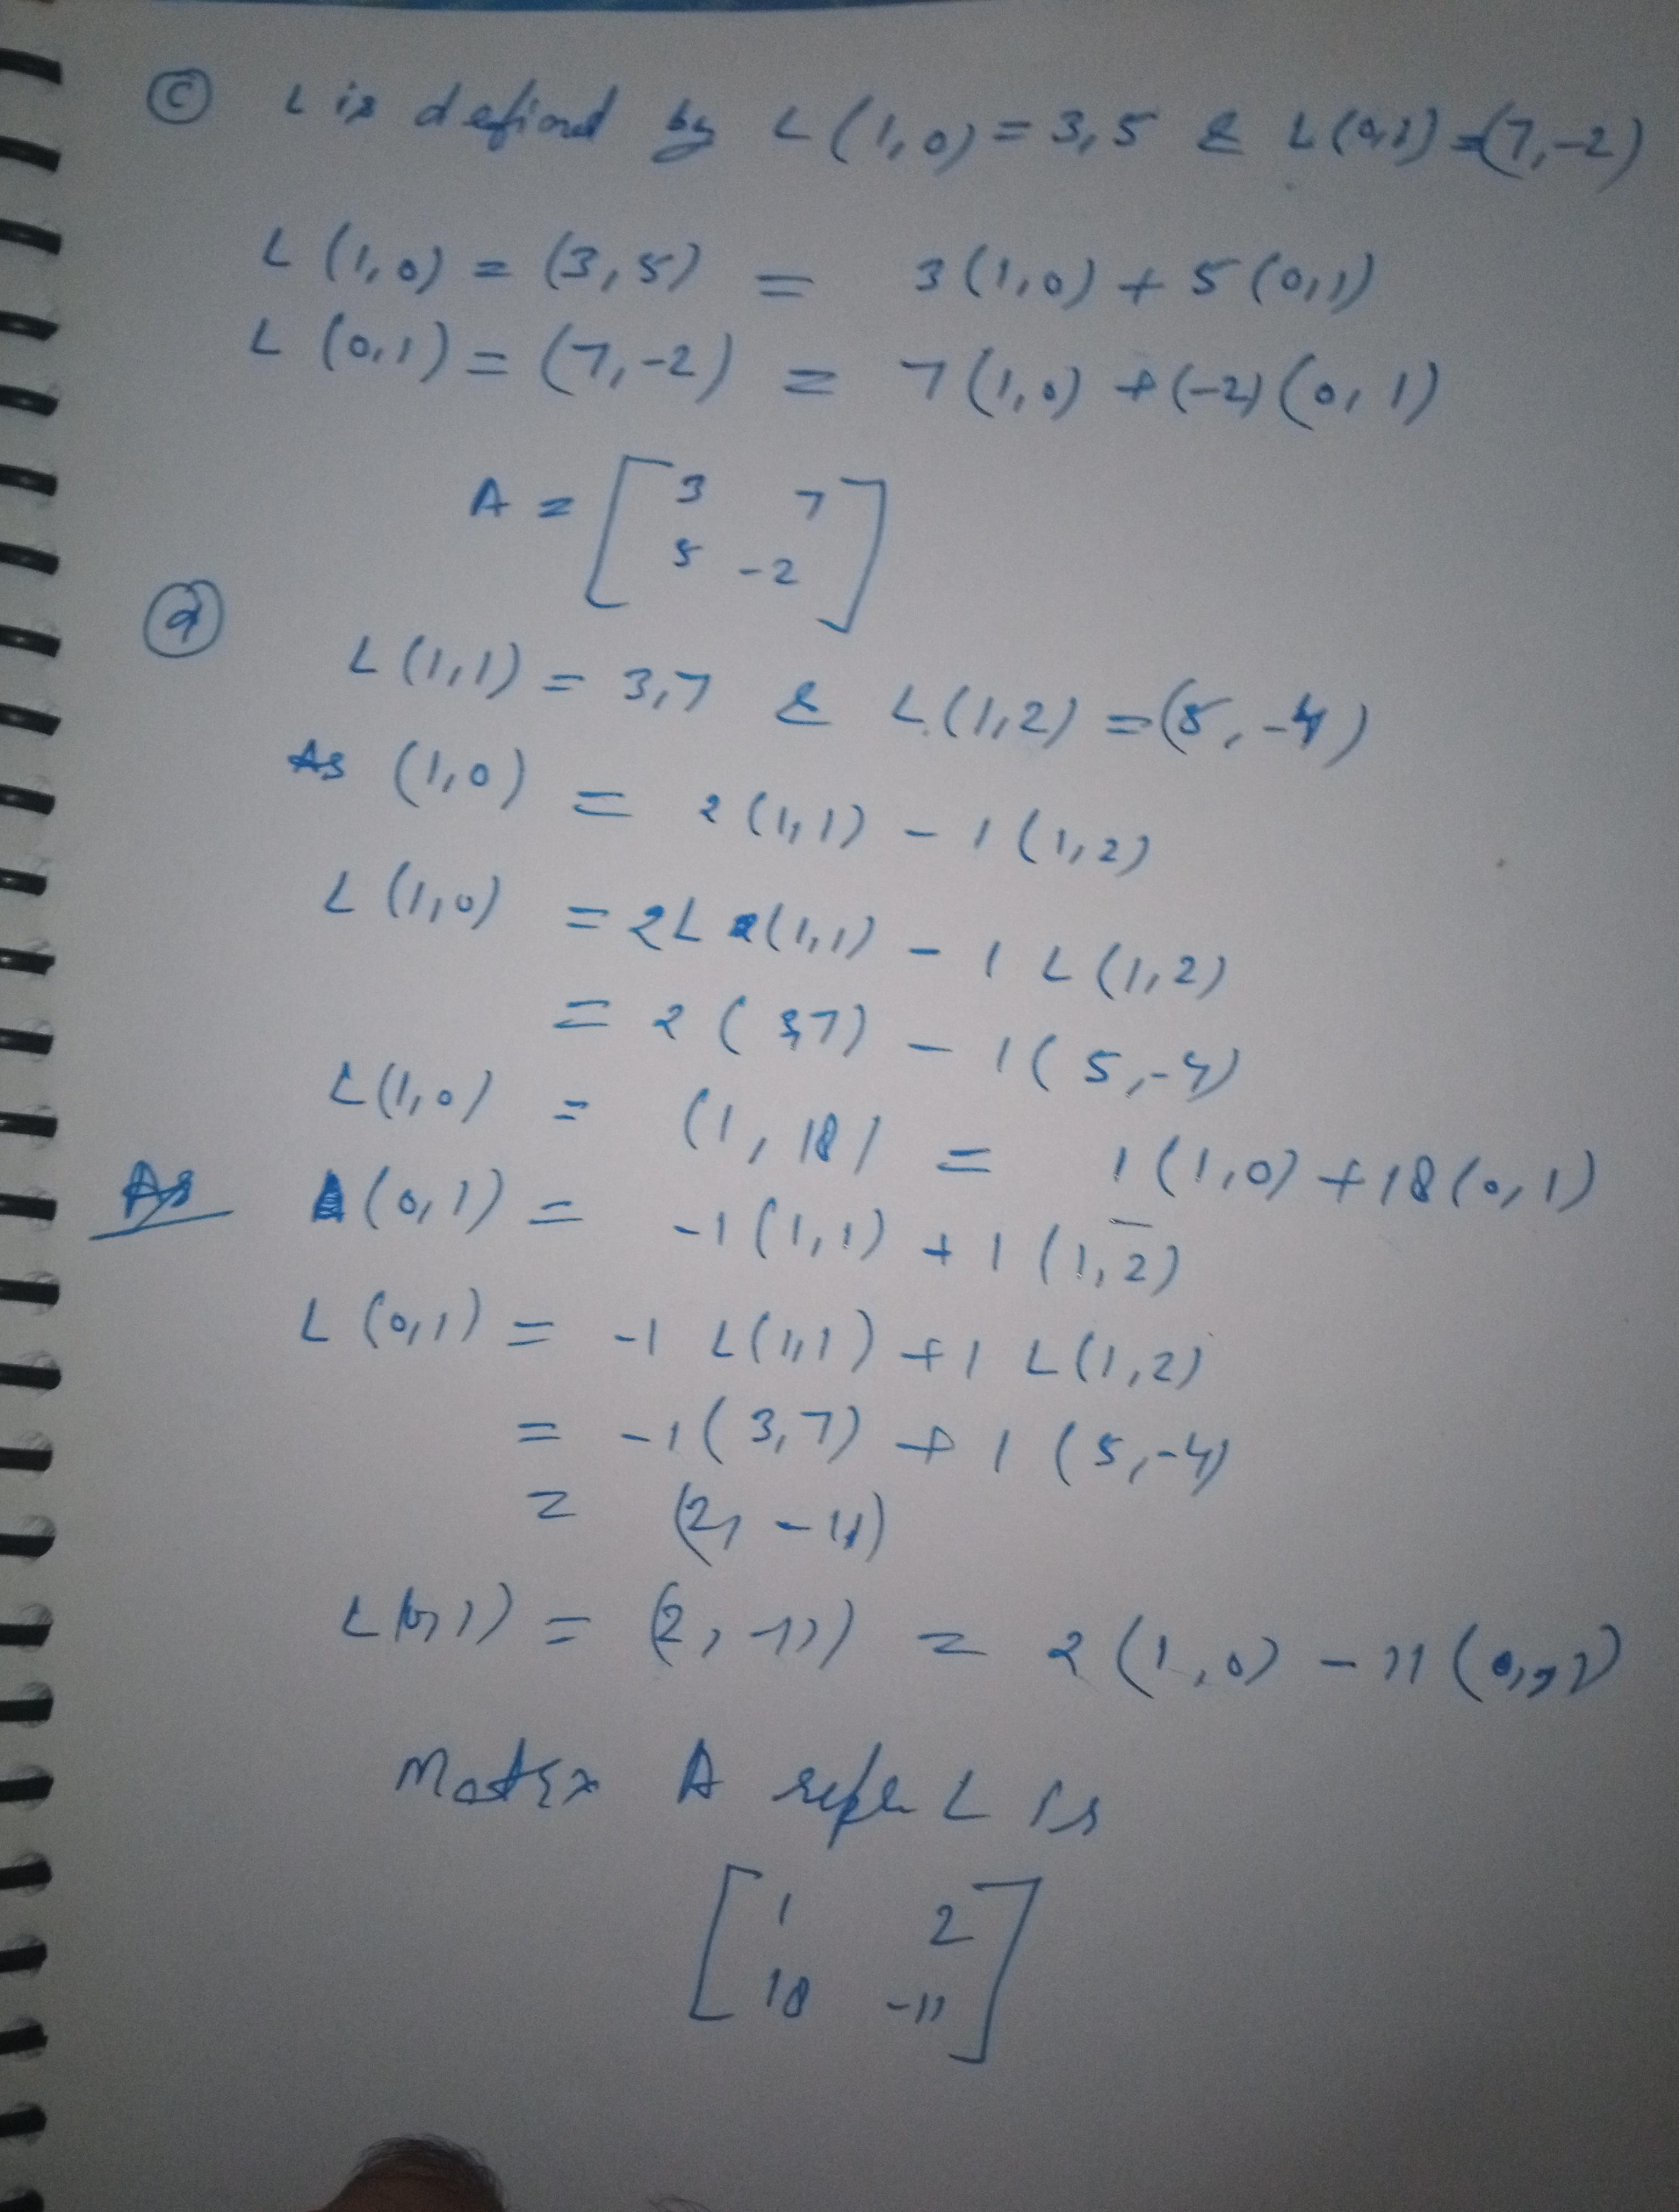 (c) L is defined by L(1,0) = 3,5 & L(0,1) = (7,-2)
L(1,0) = (3,5) = 3(1,0) + 5(0,1)
L(0,1) = (7,-2) = 7(1,0) + (-2)(0,1)
A = [3 7
5 -2]
(d)
L(1,1) = 3,7 & L(1,2) = (5,-4)
As (1,0) = 2(1,1) - 1(1,2)
L(1,0) = 2L (1,1) - 1 L(1,2)
= 2(3,7) - 1(5,-4)
L(1,0) = (1,18) = 1(1,0) + 18(0,1)
As (0,1) = -1(1,1) + 1(1,2)
L(0,1) = -1 L(1,1) + 1 L(1,2)
= -1(3,7) + 1(5,-4)
= (2,-11)
L(0,1) = (2,-11) = 2(1,0) - 11(0,1)
Matrix A L is
[1 2
18 -11]